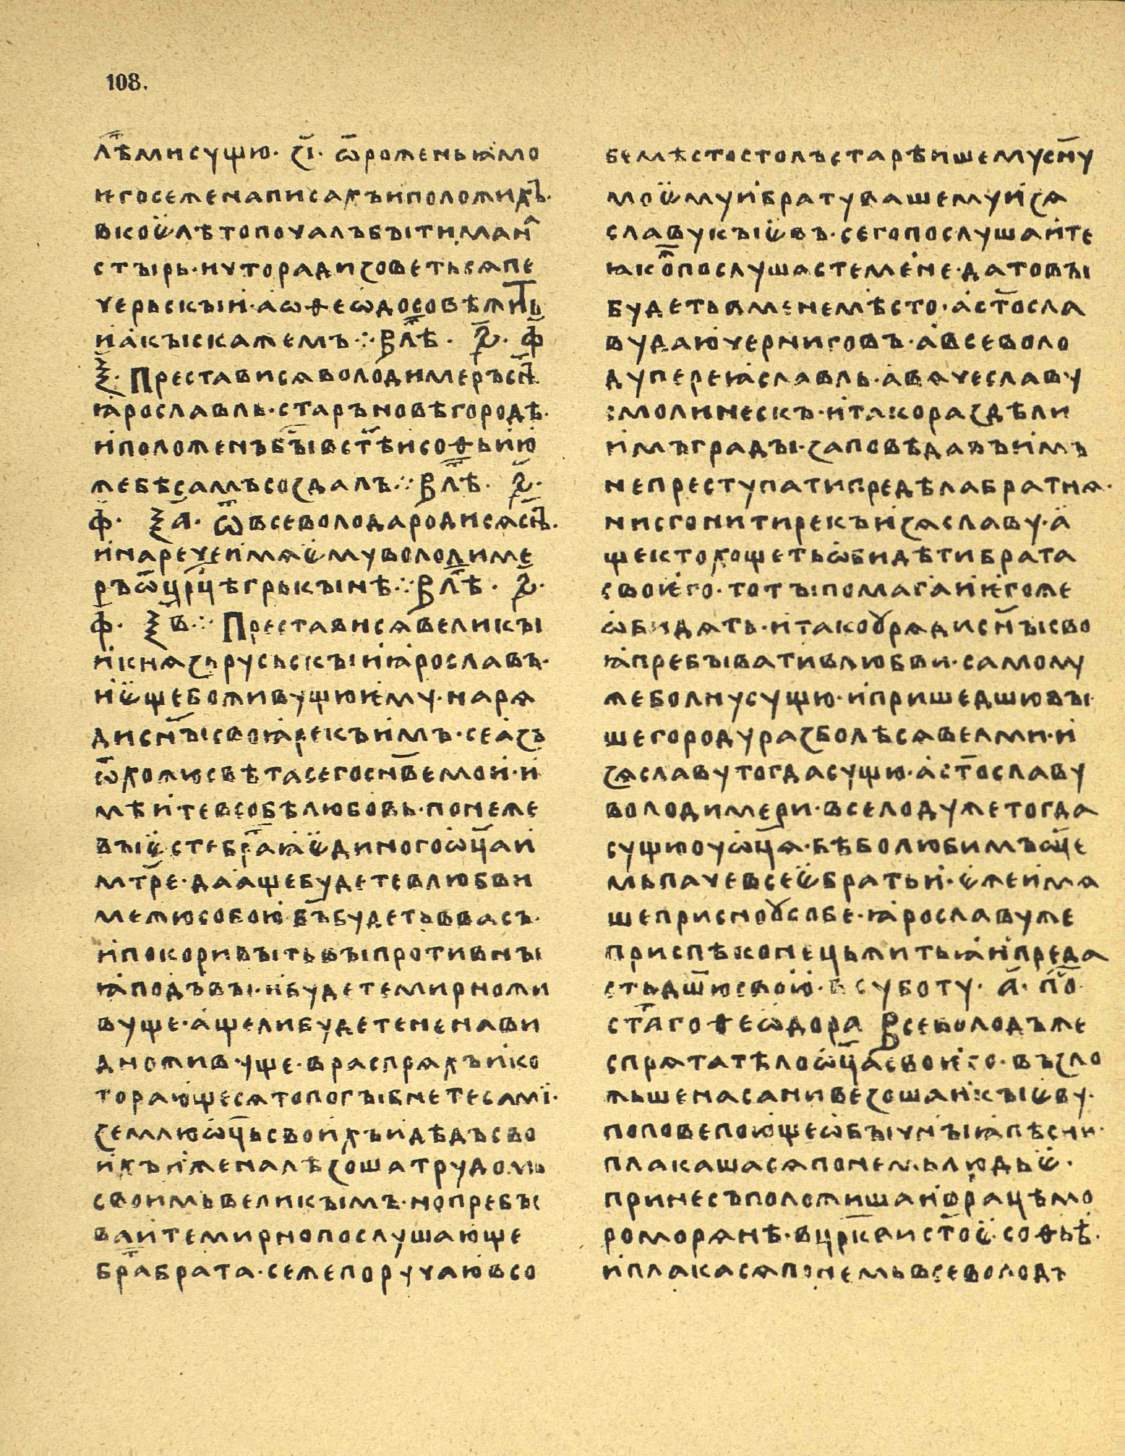 108.
лѣ҃ми сущю · з҃і · ѿ роженьꙗ мо
ѥго се же написахъ и положихъ ·
в коѥ лѣто почалъ бꙑти манⷭ
стꙑрь · и что ради зоветьсѧ пе
черьскꙑи · а ѡ ѳеѡдосовѣ жить
и пакꙑ скажемъ ⁘ В лⷮѣ · ҂ѕ҃ · ф҃
ѯ҃ · Престависѧ володимеръ сн҃ъ
ꙗрославль · старъ новѣгородѣ ·
и положенъ бꙑⷭ в ст҃ѣи софьи ю
же бѣ самъ создалъ ⁘ В лⷮѣ · ҂ѕ҃ ·
ф҃ · ѯ҃а · Ѿ всеволода родисѧ сн҃ъ ·
и нарече имѧ ѥму володиме
ръ ѿ црⷭцѣ грькꙑнѣ ⁘ В лⷮѣ · ҂ѕ҃ ·
ф҃ · ѯ҃в ⁘ Престависѧ великꙑ
и кнѧзь русьскꙑи ꙗрославъ ·
и ѥще бо живущю ѥму · нарѧ
ди сн҃ꙑ своꙗ рекъ имъ · се азъ
ѿхожю свѣта сего сн҃ве мои · и
мѣите в собѣ любовь · понеже
вꙑ ѥсте братⷮꙗ ѥдиного ѡц҃а и
мт҃ре · да аще будете в любви
межю собою б҃ъ будеть в васъ ·
и покоривꙑть вꙑ противнꙑ
ꙗ подъ вꙑ · и будете мирно жи
вуще · аще ли будете ненави
дно живуще · в распрѧхъ и ко
торающесѧ то погꙑбнете сами ·
землю ѡц҃ь своихъ и дѣдъ сво
ихъ иже налѣзоша трудомь
своимь великꙑмъ · но пребꙑ
ваите мирно послушающе
братⷮ брата · се же поручаю в со
бе мѣсто столъ старѣишему сн҃у
моѥму и брату вашему изѧ
славу кꙑѥвъ · сего послушаите
ꙗкоⷤ послушасте мене · да то вꙑ
будеть в мене мѣсто · а ст҃осла
ву даю черниговъ · а всеволо
ду переꙗславль · а вѧчеславу
смолинескъ · и тако раздѣли
имъ градꙑ · заповѣдавъ имъ
не преступати предѣла братнѧ ·
ни сгонити рекъ изѧславу · а
ще кто хощеть ѡбидѣти брата
своѥго · то тꙑ помагаи ѥгоже
ѡбидѧть · и тако ꙋрѧди сн҃ꙑ сво
ꙗ пребꙑвати в любви · самому
же болну сущю · и пришедшю вꙑ
шегороду разболѣсѧ велми · и
зѧславу тогда сущю · а ст҃ославу
володимери · в селоду же тогда
сущю у ѡц҃ѧ · бѣ бо любимъ ѡц҃е
мь паче всеѥ братьи · ѥже имѧ
ше присно ꙋ собе · ꙗрославу же
приспѣ конець житьꙗ и преда
сть дш҃ю своюⷨ · в суботу · а҃ · поⷭ
ст҃аго ѳеѡдора Всеволодъ же
спрѧта тѣло ѡц҃а своѥго · възло
жьше на сани везоша и кꙑѥву ·
попове поюще ѡбꙑчнꙑꙗ пѣсни ·
плакашасѧ по немь людьѥ ·
принесъ положиша и в рацѣ мо
роморѧнѣ · в цркⷪви ст҃оѥ · софьѣ ·
и плакасѧ по немь всеволодъ